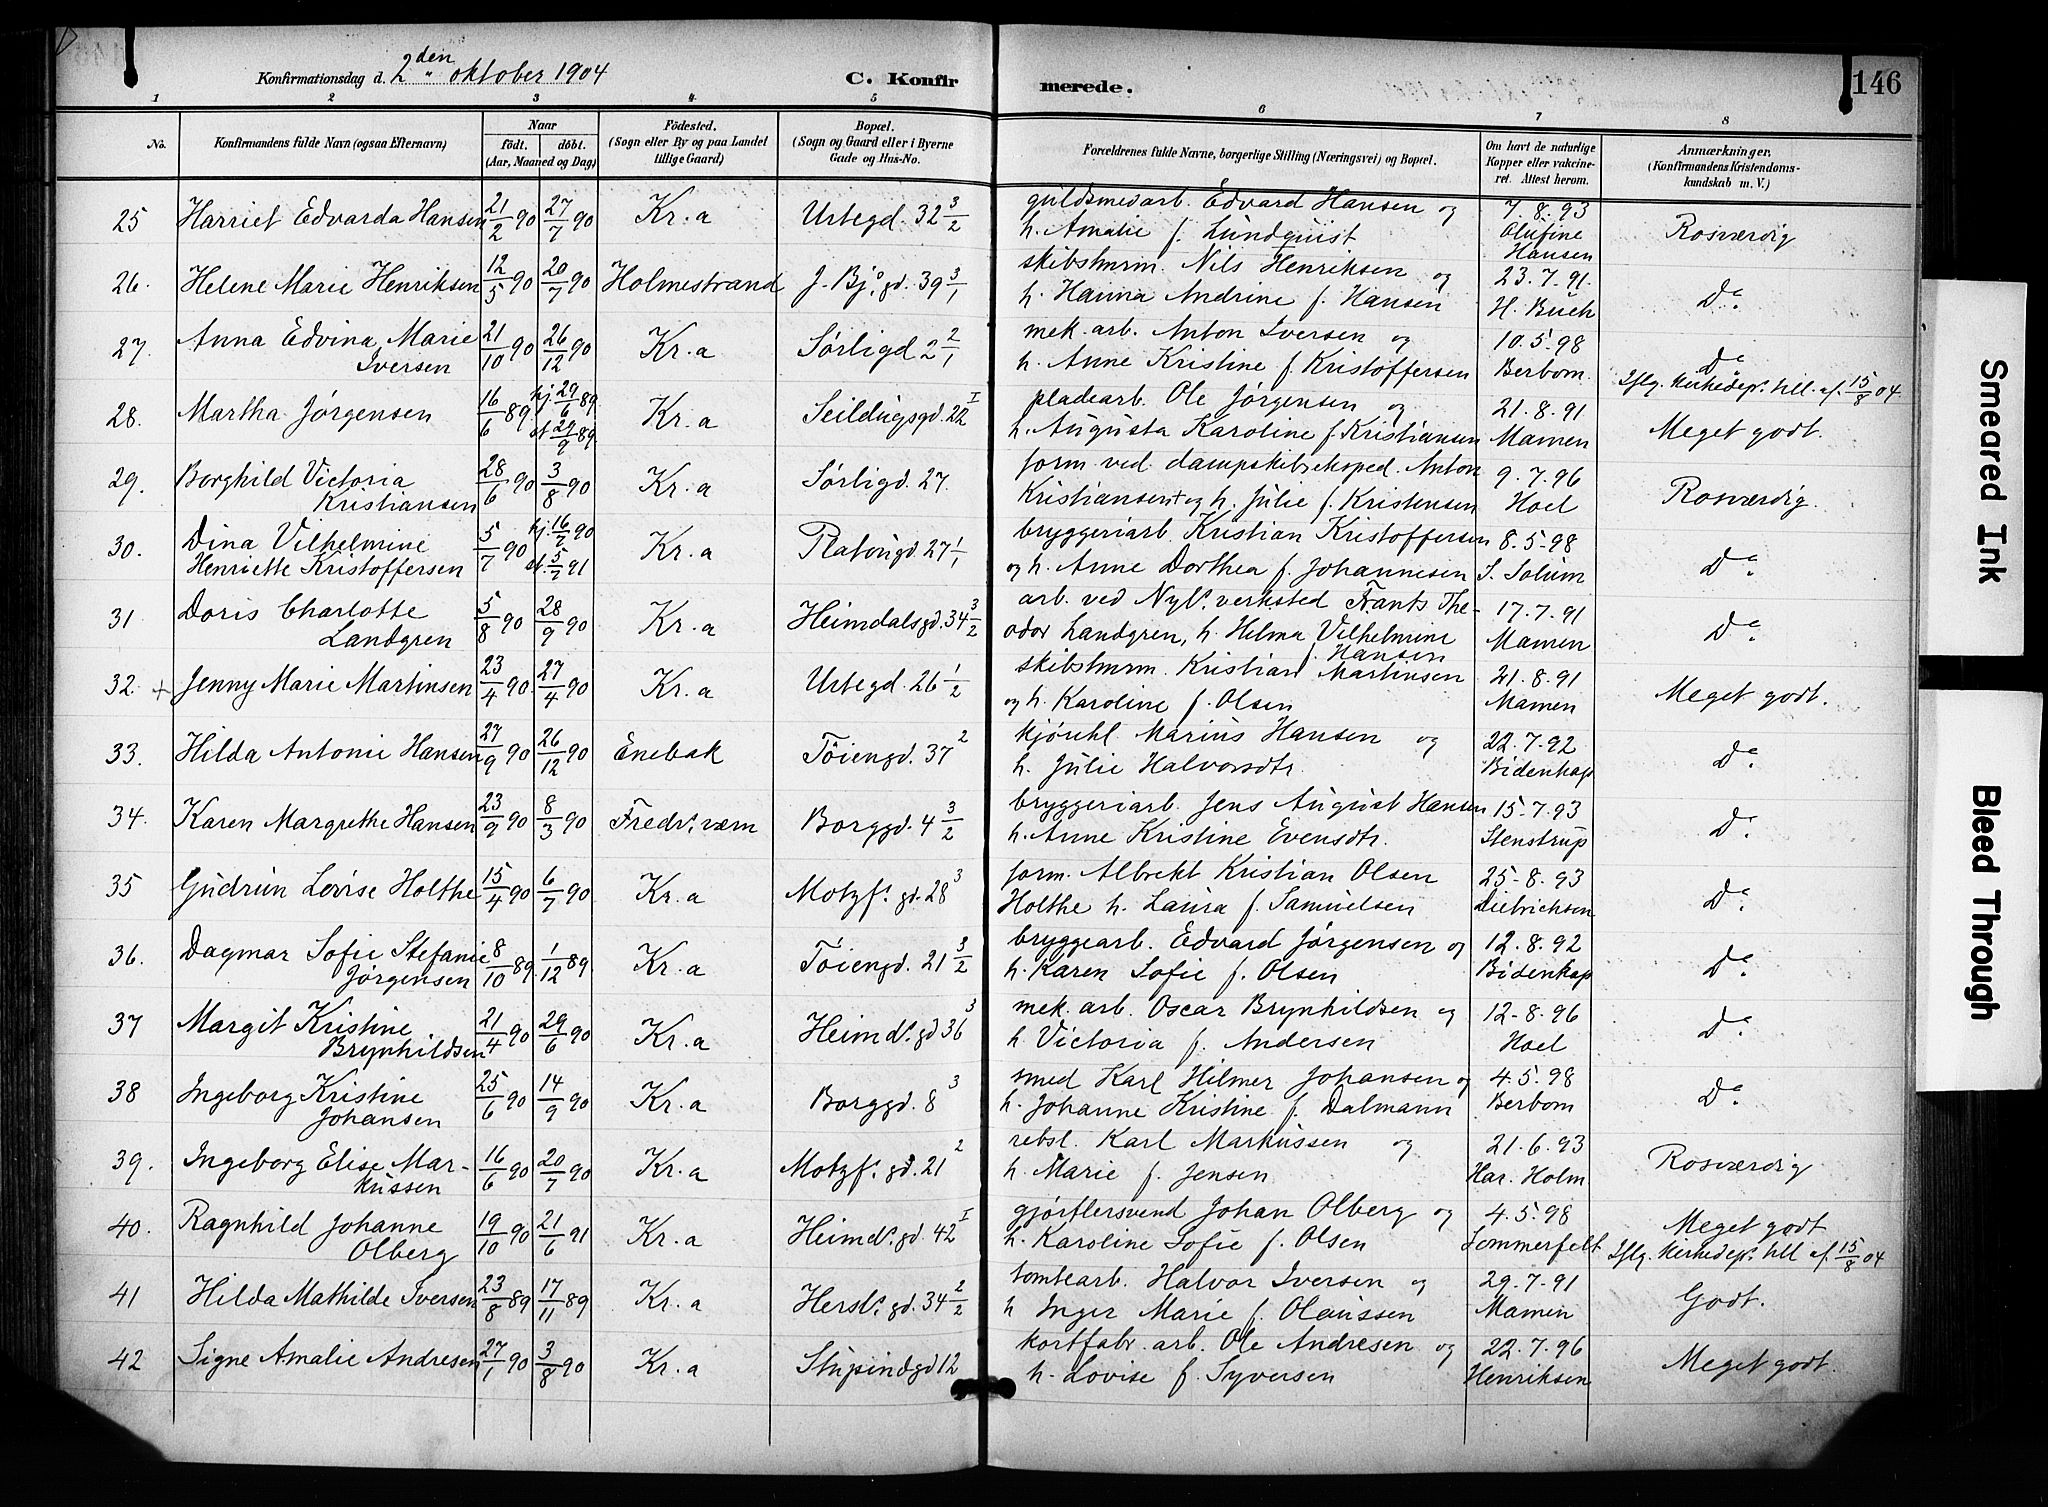 Konfirmationsdag d. 2den oktober 1904
C. Konfirmerede.
146
1 2 3 4 5 6 7 8
No.
Konfirmandens fulde Navn (ogsaa Efternavn)
Naar
födt. döbt.
(Aar, Maaned og Dag)
Födested.
(Sogn eller By og paa Landet
tillige Gaard)
Bopæl.
(Sogn og Gaard eller i Byerne
Gade og Hus-No.
Forældrenes fulde Navne, borgerlige Stilling (Næringsvei) og Bopæl.
Om havt de naturlige
Kopper eller vakcine-
ret. Attest herom.
Anmærkninger.
(Konfirmandens Kristendoms-
kundskab m. V.)
25 Harriet Edvarda Hansen 21/2 90 27/7 90 Kr.a Urtegd. 32 3/2 guldsmedarb. Edvard Hansen og 7.8.93 Rosværdig
h. Amalie f. Lundquist Olufine Hansen
26. Helene Marie Henriksen 12/5 90 20/7 90 Holmestrand J. Bj. gd. 39 3/1 skibstmrm. Nils Henriksen og 23.7.91. Do.
h. Hanna Andrine f. Hansen H. Buch
27. Anna Edvina Marie 21/10 90 26/12 90 Kr.a Sørligd 2 2/1 mek. arb. Anton Iversen og 10.5.98 Do
Iversen h. Anne Kristine f. Kristoffersen Berbom.
28. Martha Jørgensen 16/6 89 hj. 29/6 89 st 29/9 89 Kr.a Seildugsgd. 22 I pladearb. Ole Jørgensen og 21.8.91 Iflg. kirkedep. till. af. 15/8 04.
h. Augusta Karoline f. Kristiansen Mamen Meget godt.
29. Borghild Victoria 28/6 90 3/8 90 Kr.a Sørligd. 27. form. ved dampskibseksped. Anton 9.7.96 Rosværdig.
Kristiansen Kristiansen + og h. Julie f. Kristensen Hoel
30. Dina Vilhelmine 5/7 90 hj. 16/7 90 st. 5/7 91 Kr.a Platougd. 27 1/1 bryggeriarb. Kristian Kristoffersen 8.5.98 Do.
Henriette Kristoffersen og h. Anne Dorthea f. Johannesen S. Solum
31 Doris Charlotte 5/8 90 28/9 90 Kr.a Heimdalsgd. 34 3/2 arb. ved Nyl. verksted Frants The- 17.7.91 Do.
Landgren odor Landgren, h. Hilma Vilhelmine f. Hansen Mamen
32. + Jenny Marie Martinsen 23/4 90 27/4 90 Kr.a Urtegd. 26 1/2 skibstmrm. Kristian Martinsen 21.8.91 Meget godt.
og h. Karoline f. Olsen Mamen
33. Hilda Antonie Hansen 27/9 90 26/12 90 Enebak Töiengd. 37 2 kjørekl Marius Hansen og 22.7.92 Do.
h. Julie Halvorsdtr. Bidenkap
34. Karen Margrethe Hansen 23/9 90 8/3 90 Freds. værn Borggd. 4 3/2 bryggeriarb. Jens August Hansen 15.7.93 Do.
h. Anne Kristine Evensdtr. Stenstrup
35 Gudrun Lovise Holthe 15/4 90 6/7 90 Kr.a Motzf. gd. 28 3 form. Albrekt Kristian Olsen 25-8.93 Do.
Holthe h. Laura f. Samuelsen Dietrichsen
36. Dagmar Sofie Stefanie 8/10 89 1/12 89 Kr.a Töiengd. 21 3/2 bryggearb. Edvard Jørgensen og 12.8.92 Do.
Jørgensen h. Karen Sofie f. Olsen Bidenkap
37 Margit Kristine 21/4 90 29/6 90 Kr.a Heimd. gd 36 3 mek. arb. Oscar Brynhildsen og 12-8.96 Do.
Brynhildsen h Victoria f. Andersen Hoel
38 Ingeborg Kristine 25/6 90 14/9 90 Kr.a Borggd. 8 3 smed Karl Hilmer Johansen og 4.5.98 Do.
Johansen h. Johanne Kristine f. Dalmann Berbom
39. Ingeborg Elise Mar- 16/6 90 20/7 90 Kr.a Motzf. gd. 21 2 rebsl. Karl Markussen og 21.6.93 Rosværdig
kussen h. Marie f. Jensen Har. Holm
40. Ragnhild Johanne 19/10 90 21/6 91 Kr.a Heimd. gd. 42 I gjørtlersvend Johan Olberg og 4.5.98 Meget godt
Olberg h. Karoline Sofie f. Olsen Sommerfelt Iflg. kirkedep. till af. 15/8 04
41 Hilda Mathilde Iversen 23/8 89 17/11 89 Kr.a Hersl. gd. 34 2/2 tomtearb. Halvor Iversen og 29.7.91 Godt.
h Inger Marie f. Olaussen Mamen
42 Signe Amalie Andresen 27/1 90 3/8 90 Kr.a Stupindgd 12 kortfabr. arb. Ole Andresen og 22.7.96 Meget godt.
h. Lovise f. Syversen Henriksen
Smeared Ink
Bleed Through